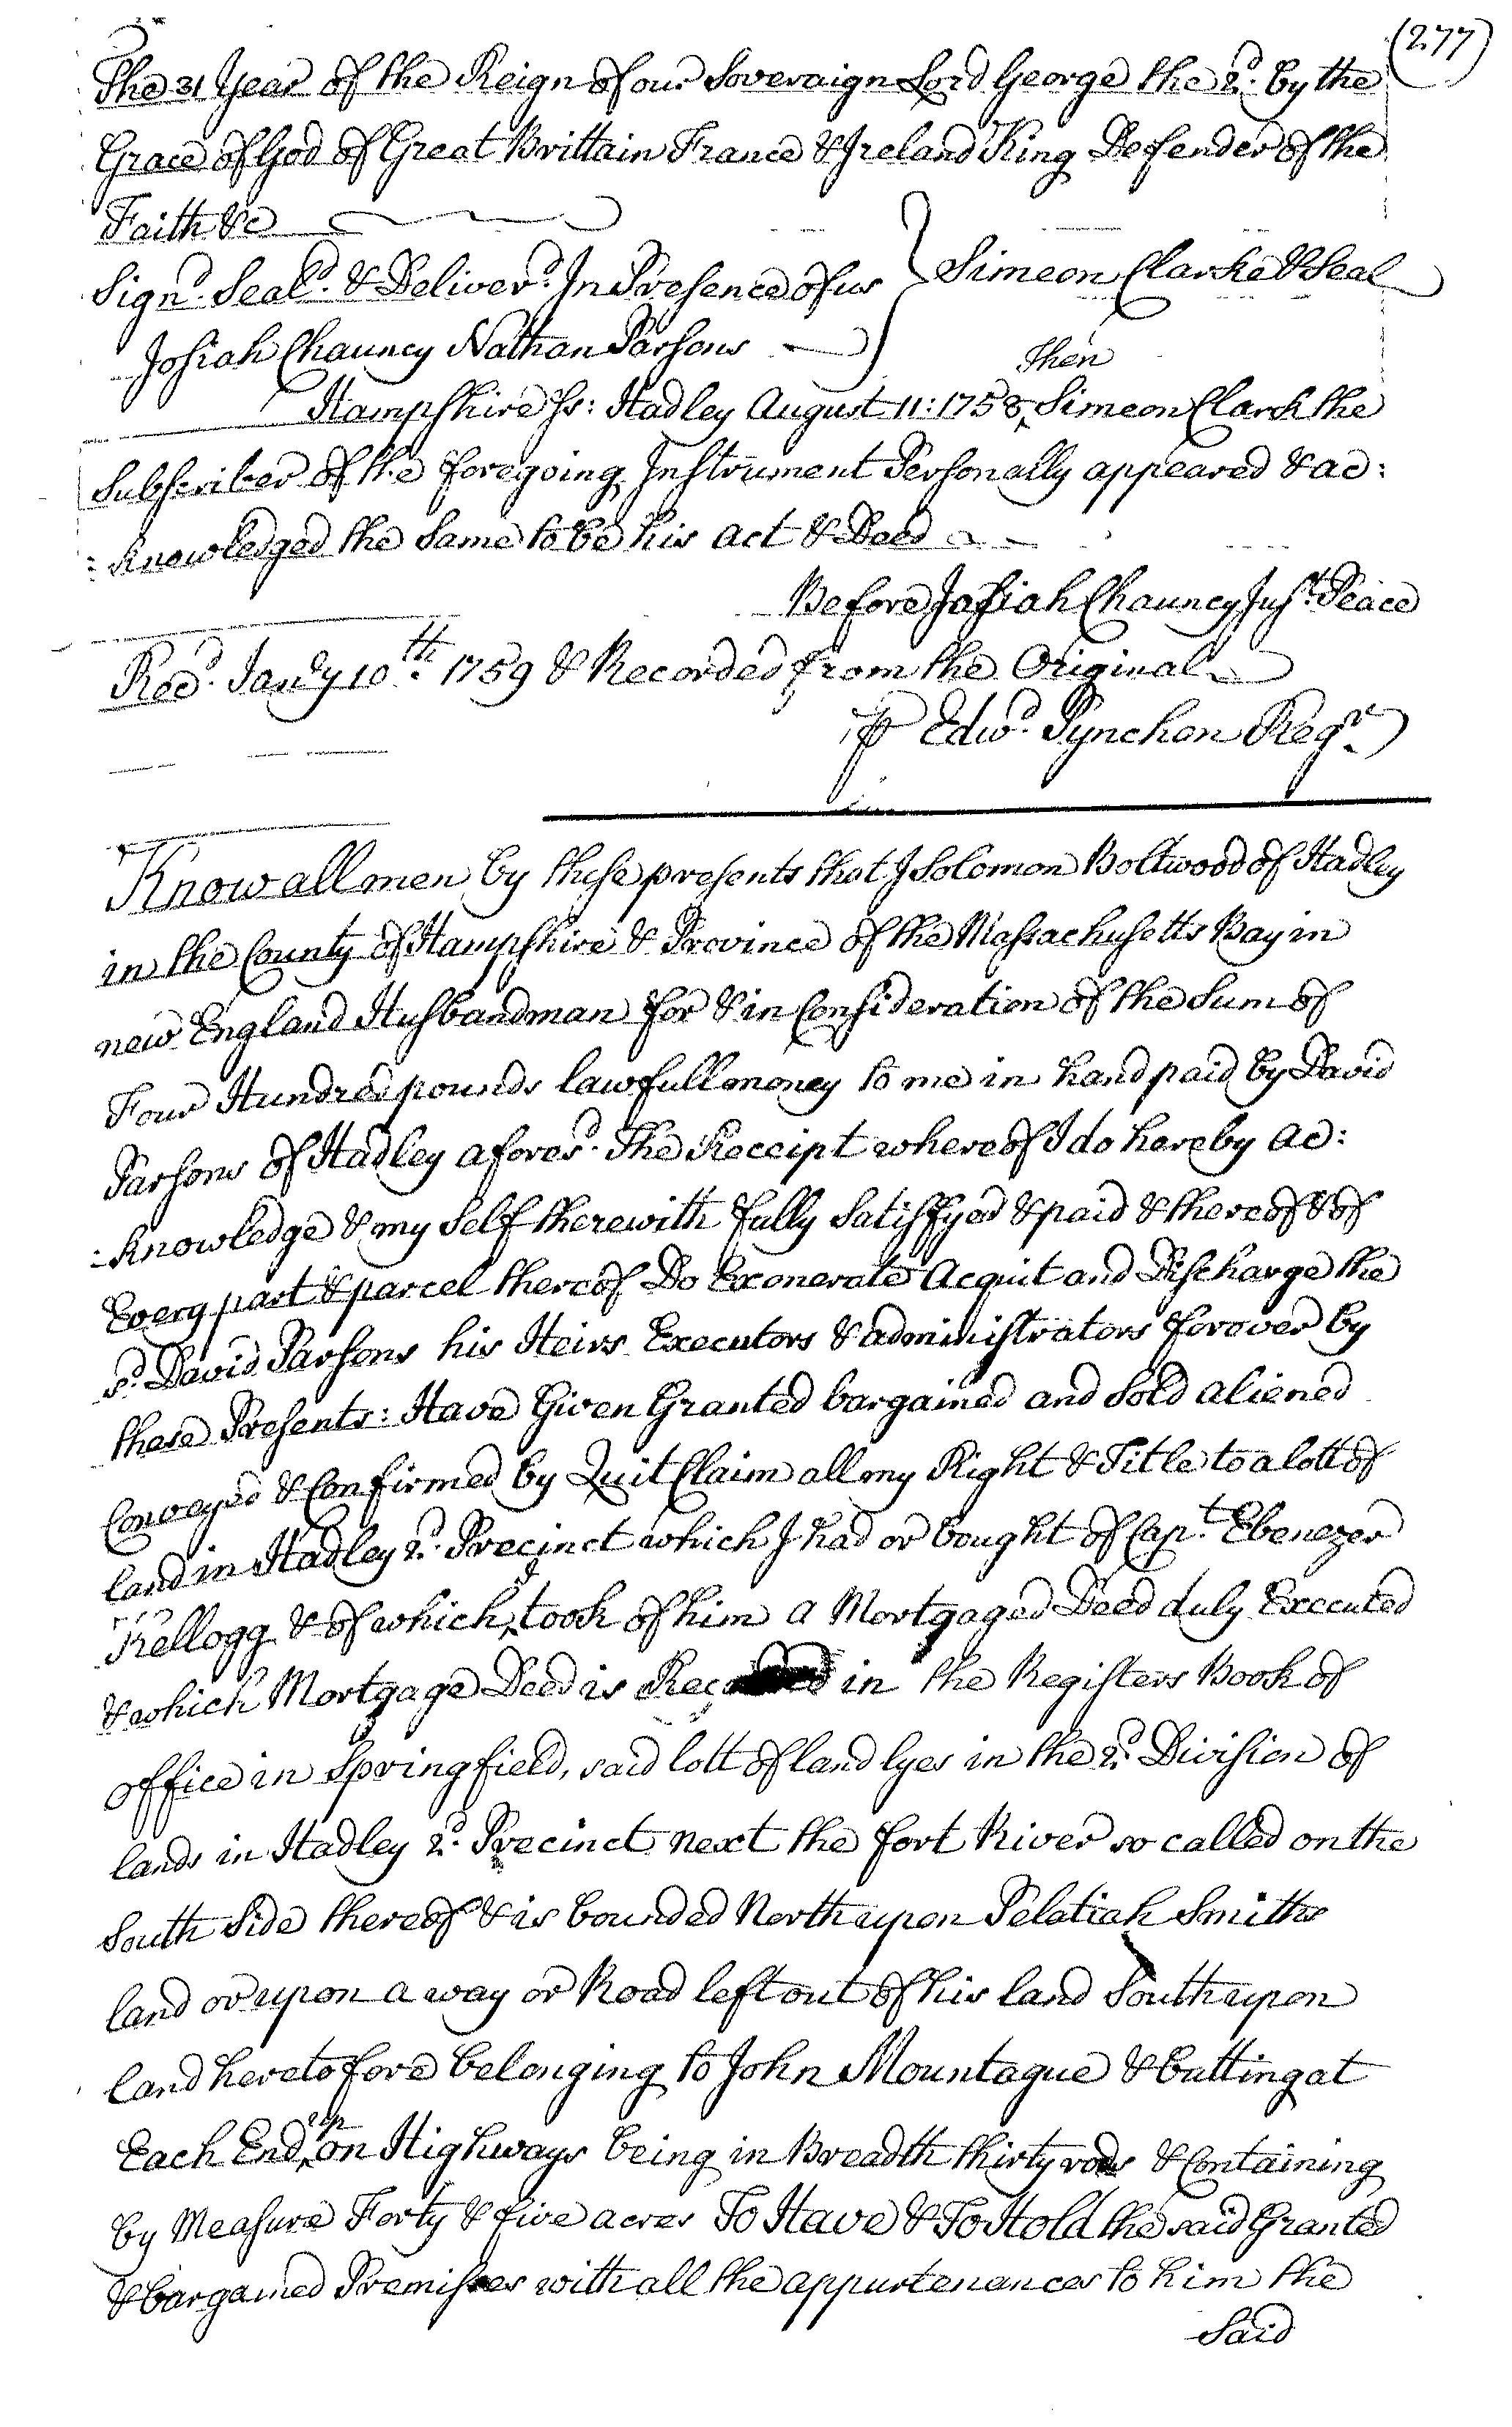 (277)
The 31 Year of the Reign of our Soveraign Lord George the 2d. by the
Grace of God of Great Brittain France & Ireland King Defender of the
Faith &c
Signd. Seald. & Deliverd. In Presence of us } Simeon Clarke & Seal
Josiah Chauncy Nathan Parsons
Hampshire ss: Hadley August 11: 1758, then Simeon Clark the
Subscriber of the foregoing Instrument Personally appeared & ac:
:knowledged the Same to be his act & Deed
Before Josiah Chauncy Just. Peace
Recd. Jandy 10th. 1759 & Recorded from the Original
P Edwd. Pynchon Regr.
Know all men by these presents that I Solomon Boltwood of Hadley
in the County of Hampshire & Province of the Massachusetts Bay in
new England Husbandman for & in Consideration of the Sum of
Four Hundred pounds lawfull money to me in hand paid by David
Parsons of Hadley aforesd. The Receipt whereof I do hereby ac:
:knowledge & my Self therewith fully Satisfyed & paid & thereof & of
Every part & parcel thereof Do Exonerate Acquit and Discharge the
sd. David Parsons his Heirs Executors & administrators forever by
these Presents: Have Given Granted bargained and Sold aliened
Conveyed & Confirmed by Quit Claim all my Right & Title to a lott of
land in Hadley 2d. Precinct which I had or bought of Capt. Ebenezer
Kellogg & of which I took of him a Mortgaged Deed duly Executed
& which Mortgage Deed is Recorded in the Registers Book of
office in Springfield, said lott of land lyes in the 2d. Division of
lands in Hadley 2d. Precinct next the fort River so called on the
South Side thereof & is bounded North upon Pelatiah Smiths
land or upon a way or Road left out of his land South upon
land heretofore belonging to John Mountague & butting at
Each End up on Highways being in Breadth thirty rods & Containing
by Measure Forty & five acres To Have & To Hold the said Granted
& bargained Premisses with all the appurtenances to him the
Said